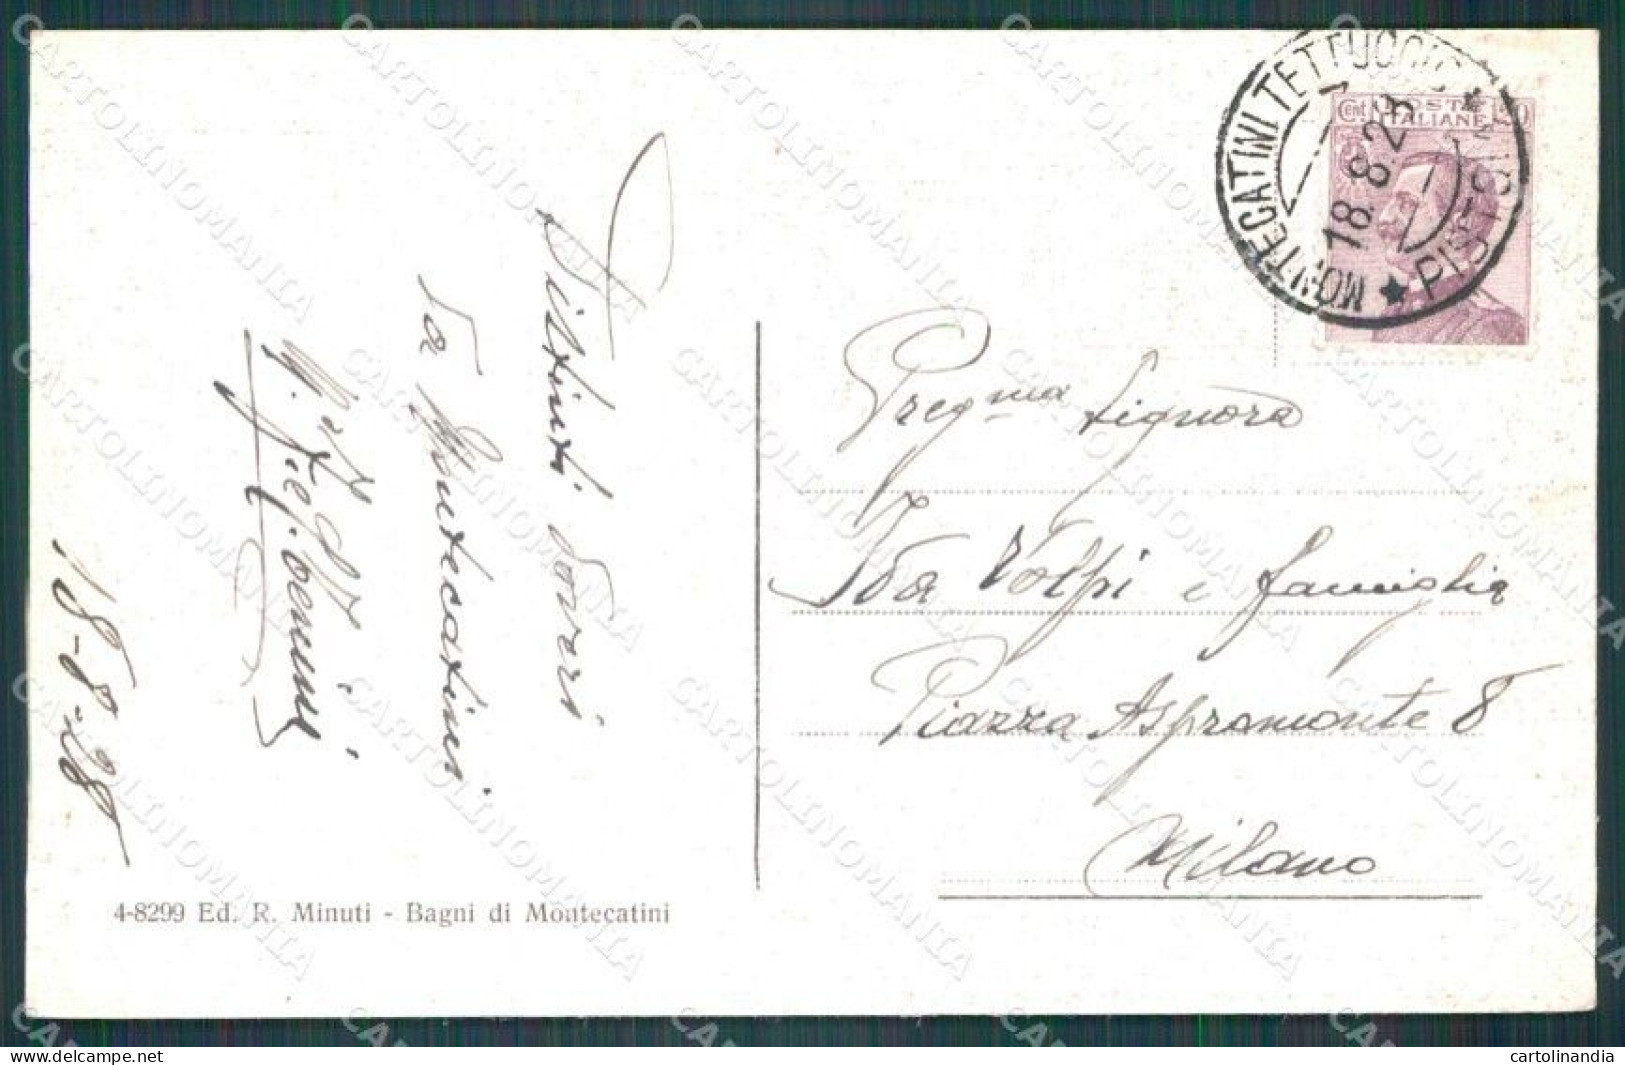 MONTECATINI TETTUCCIO
★ PISTOIA ★
18.8.28
Cent.
POSTE
ITALIANE
Distinti doveri
da Montecatini
18-8-28
Preg.ma Signora
Ida Volpi e famiglia
Piazza Aspromonte 8
Milano
4-8299 Ed. R. Minuti - Bagni di Montecatini
CARTOLINOMANIA
cartolinandia